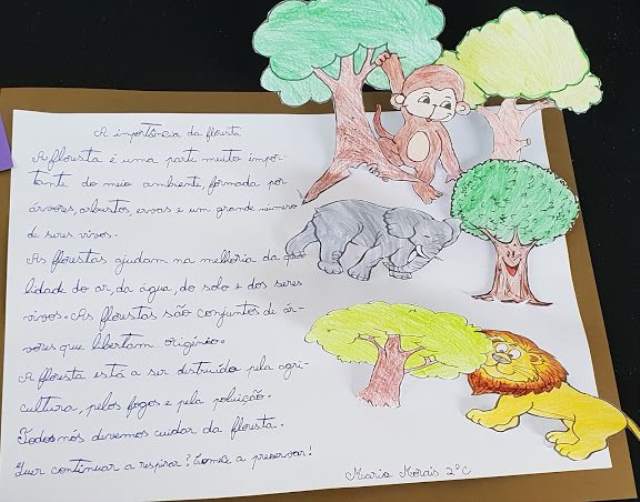 A importância da floresta
A floresta é uma parte muito impor-
tante do meio ambiente, formada por
árvores, arbustos, ervas e um grande número
de seres vivos.
As florestas ajudam na melhoria da qua-
lidade do ar, da água, do solo e dos seres
vivos. As florestas são conjuntos de ár-
vores que libertam oxigénio.
A floresta está a ser destruída pela agri-
cultura, pelos fogos e pela poluição.
Todos nós devemos cuidar da floresta.
Quer continuar a respirar? Comece a preservar!
Maria Morais 2º C